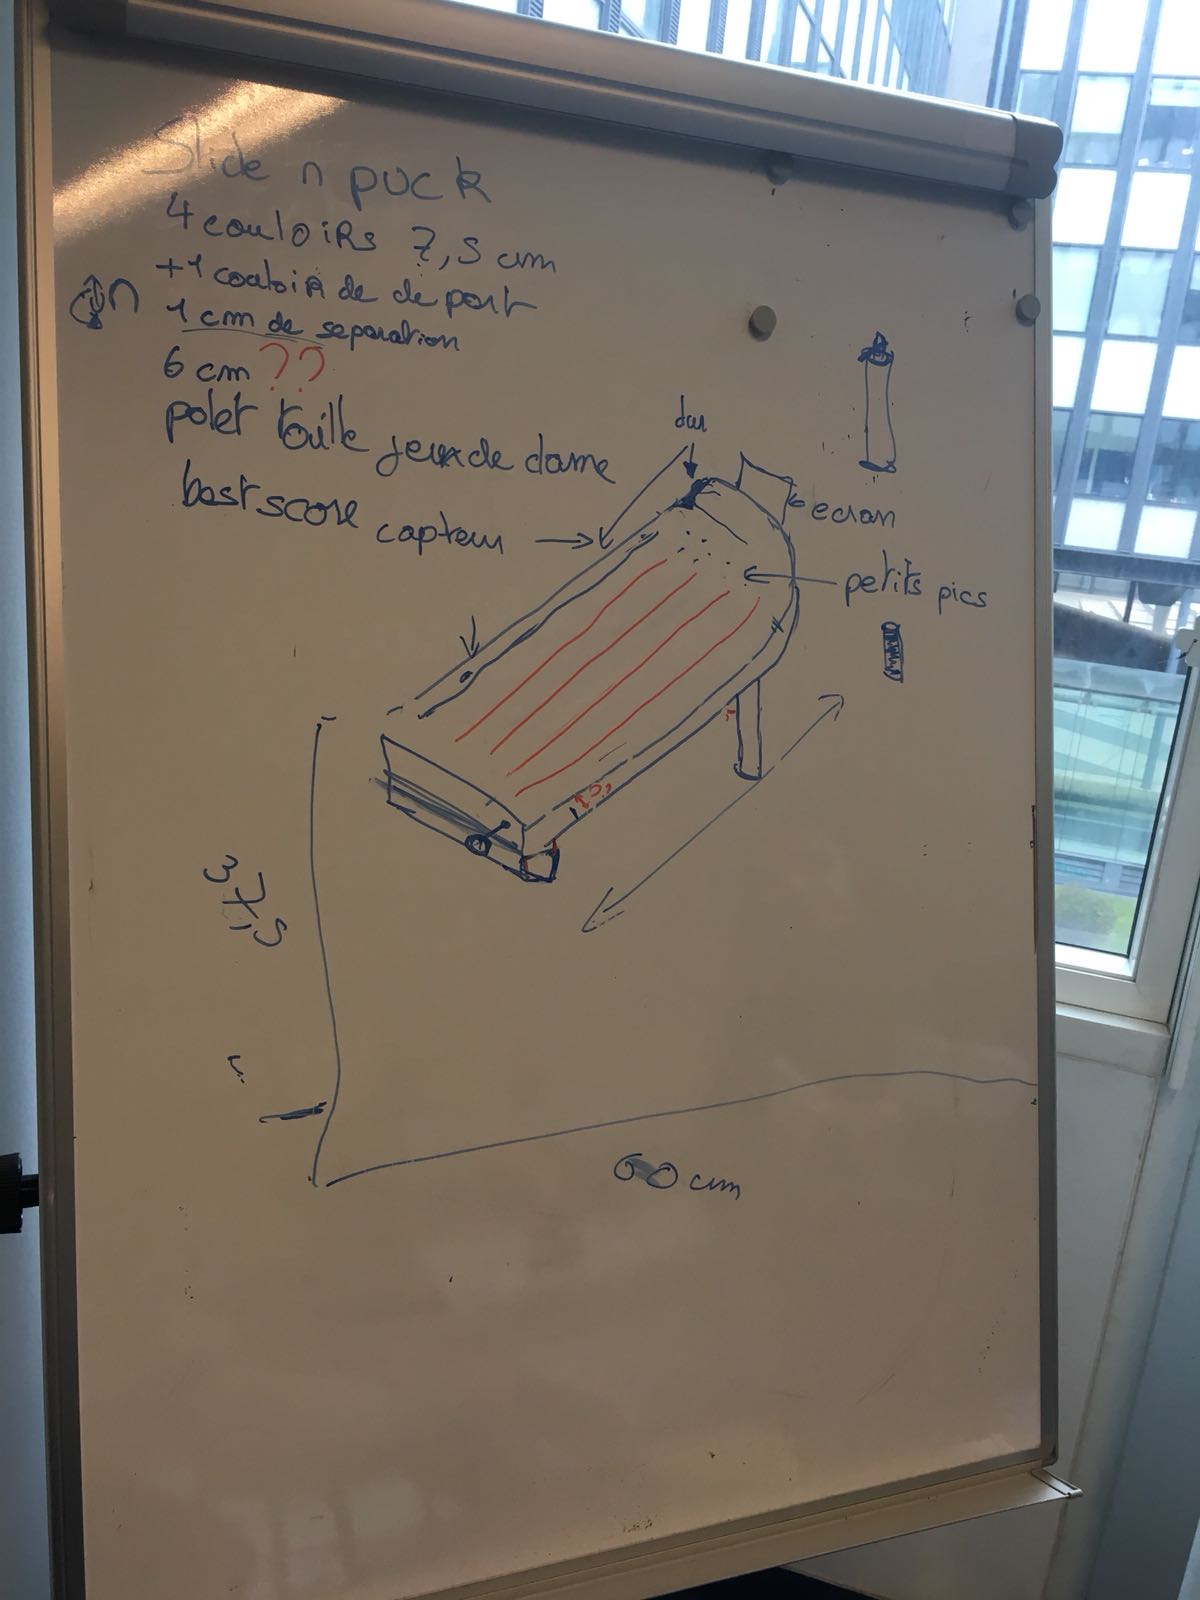 Slide n puck
4 couloirs 7,5 cm
+1 couloir de depart
1 cm de separation
6 cm ??
polet taille jeux de dame
best score
capteur
dur
ecran
petits pics
37,5
60 cm